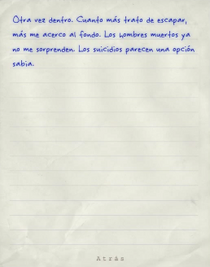 Otra vez dentro. Cuanto más trato de escapar,
más me acerco al fondo. Los hombres muertos ya
no me sorprenden. Los suicidios parecen una opción
sabia.
Atrás